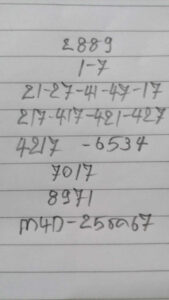 2889
1-7
21-27-41-47-17
217-417-421-427
4217 -6534
7017
8971